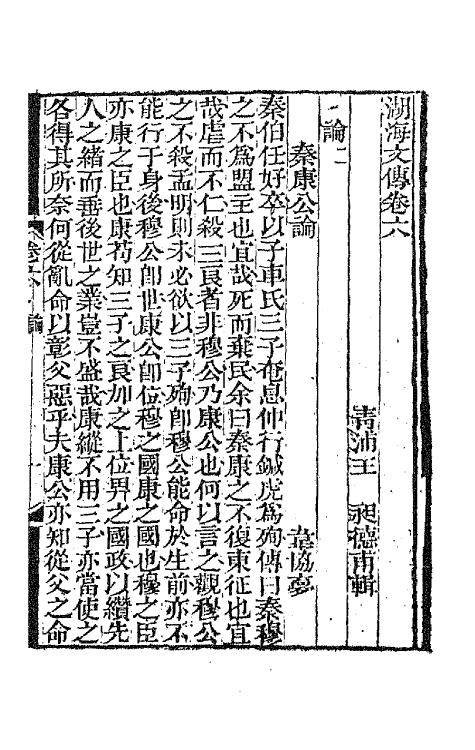 湖海文傳卷六
青浦王 昶德甫輯
論二
秦康公論 韋協夢
秦伯任好卒以子車氏三子奄息仲行鍼虎爲殉傳曰秦穆
之不爲盟主也宜哉死而棄民余曰秦康之不復東征也宜
哉虐而不仁殺三良者非穆公乃康公也何以言之觀穆公
之不殺孟明則未必欲以三子殉卽穆公能命於生前亦不
能行于身後穆公卽世康公卽位穆之國康之國也穆之臣
亦康之臣也康苟知三子之良加之上位畀之國政以纘先
人之緒而垂後世之業豈不盛哉康縱不用三子亦當使之
各得其所奈何從亂命以彰父惡乎夫康公亦知從父之命
卷六 論 一